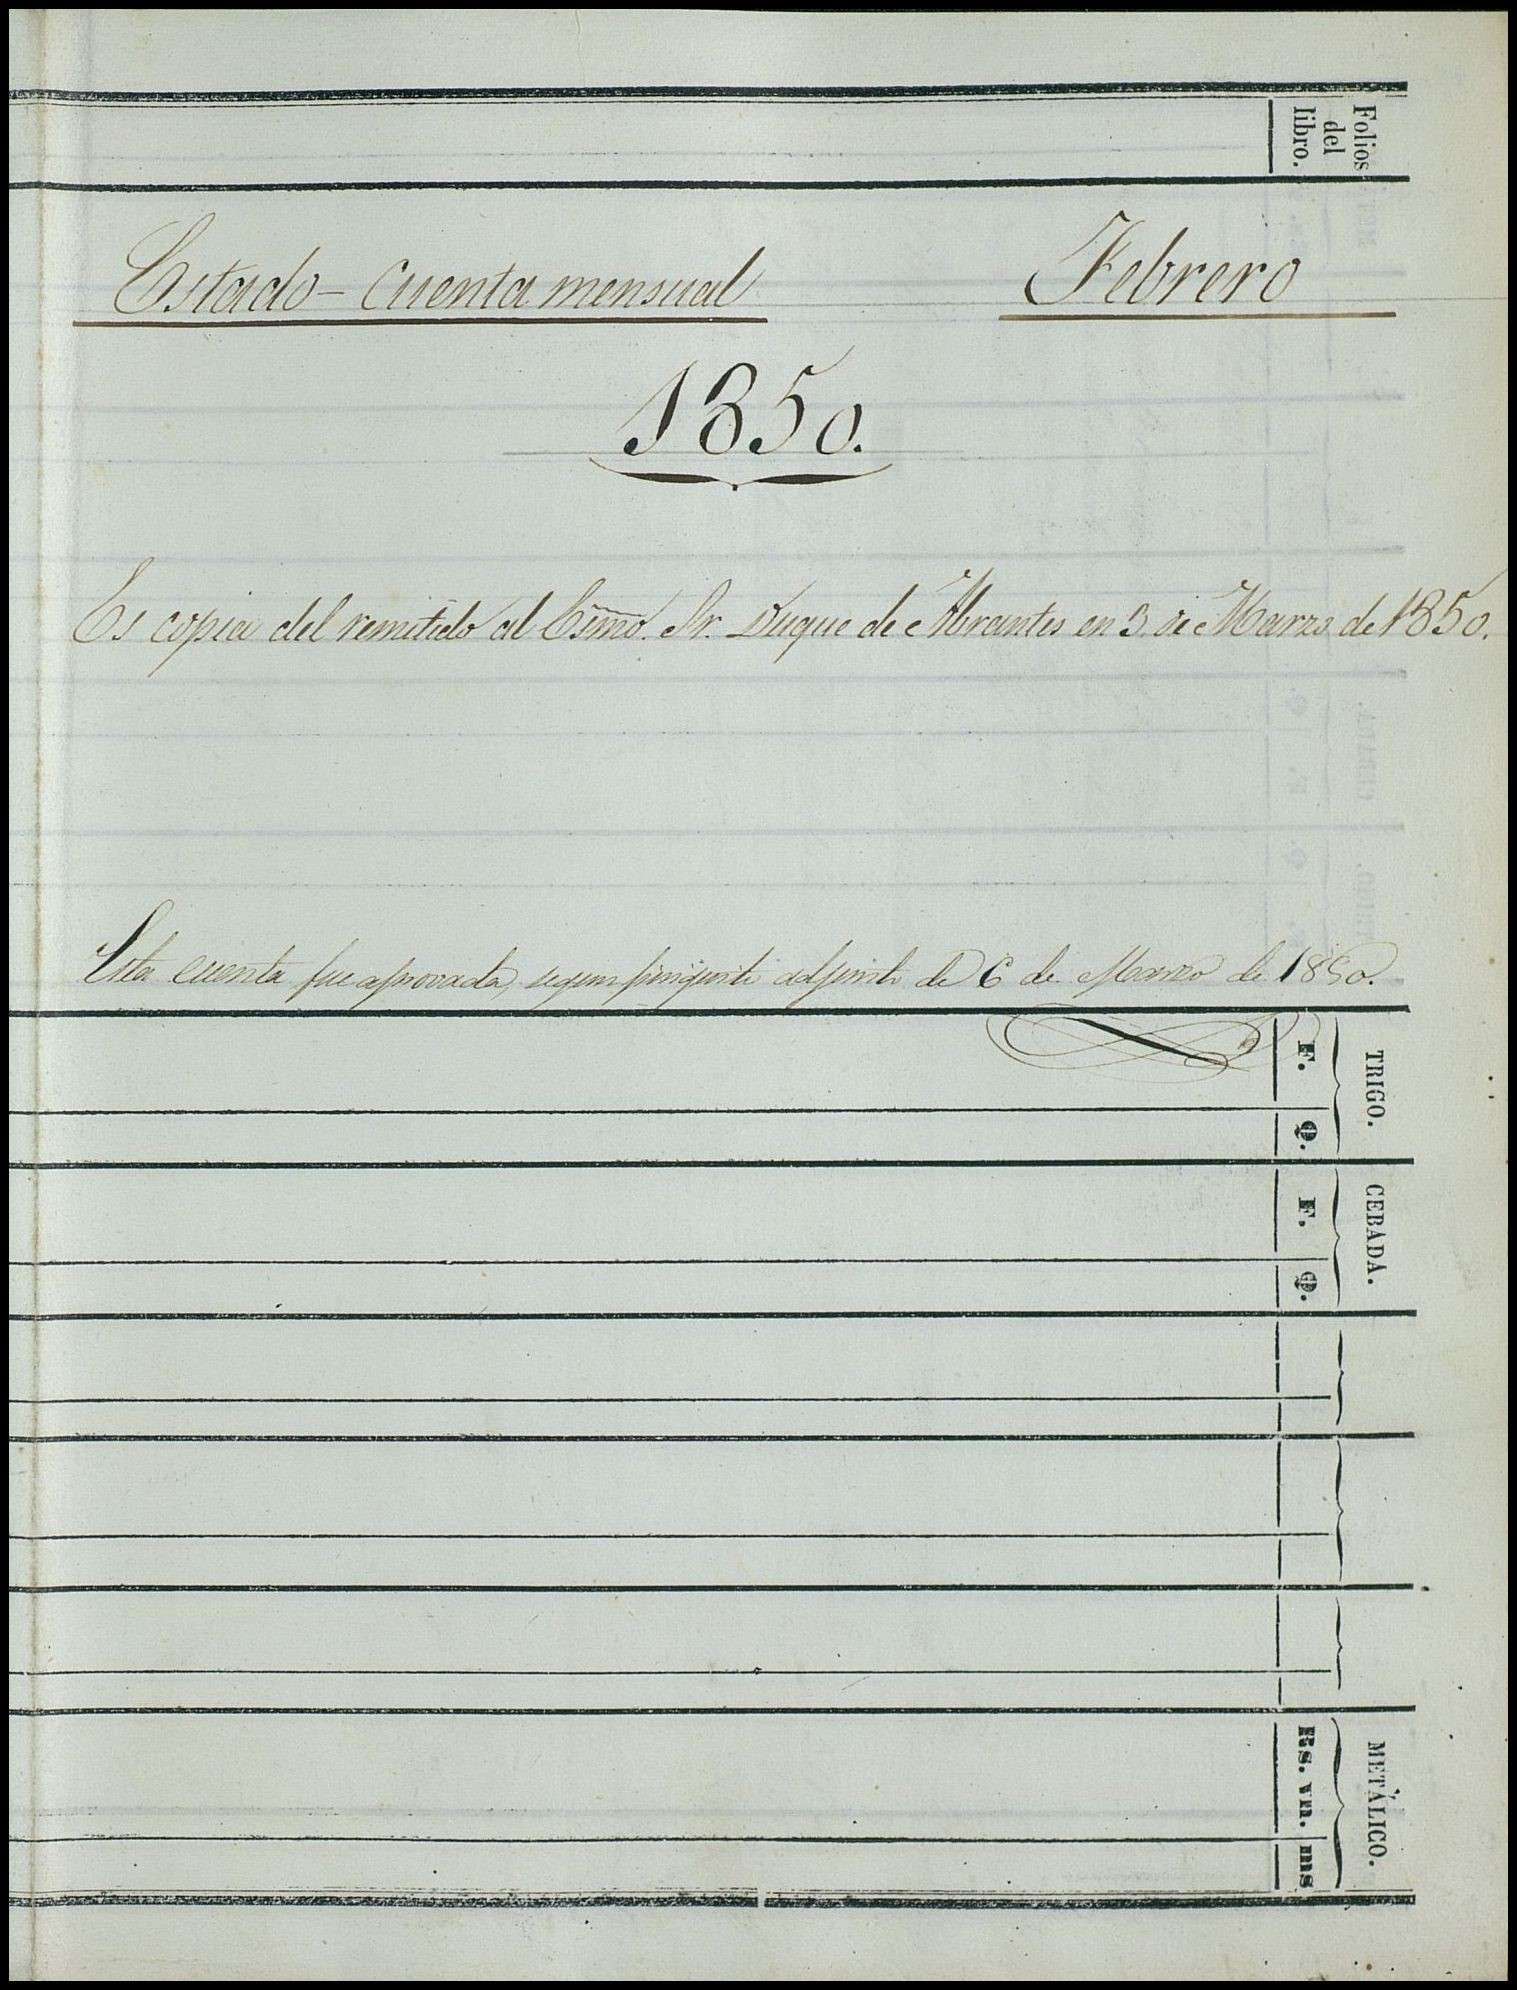 Folios
del
libro.
Estado - cuenta mensual Febrero
1850.
Es copia del remitido al Esmo. Sr. Duque de Abrantes en 3. de Marzo de 1850.
Esta cuenta fue aprovada, segun adjunto de 6 de Marzo de 1850.
TRIGO.
F. Q.
CEBADA.
F. Q.
METÁLICO.
Rs. vn. ms